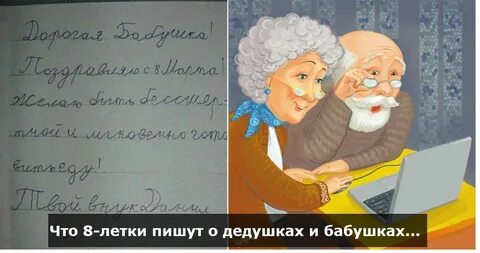 Дорогая Бабушка!
Поздравляю с 8 Марта!
Желаю быть бессмер-
тной и мгновенно гото
вить еду!
Твой внук Данил
Что 8-летки пишут о дедушках и бабушках...